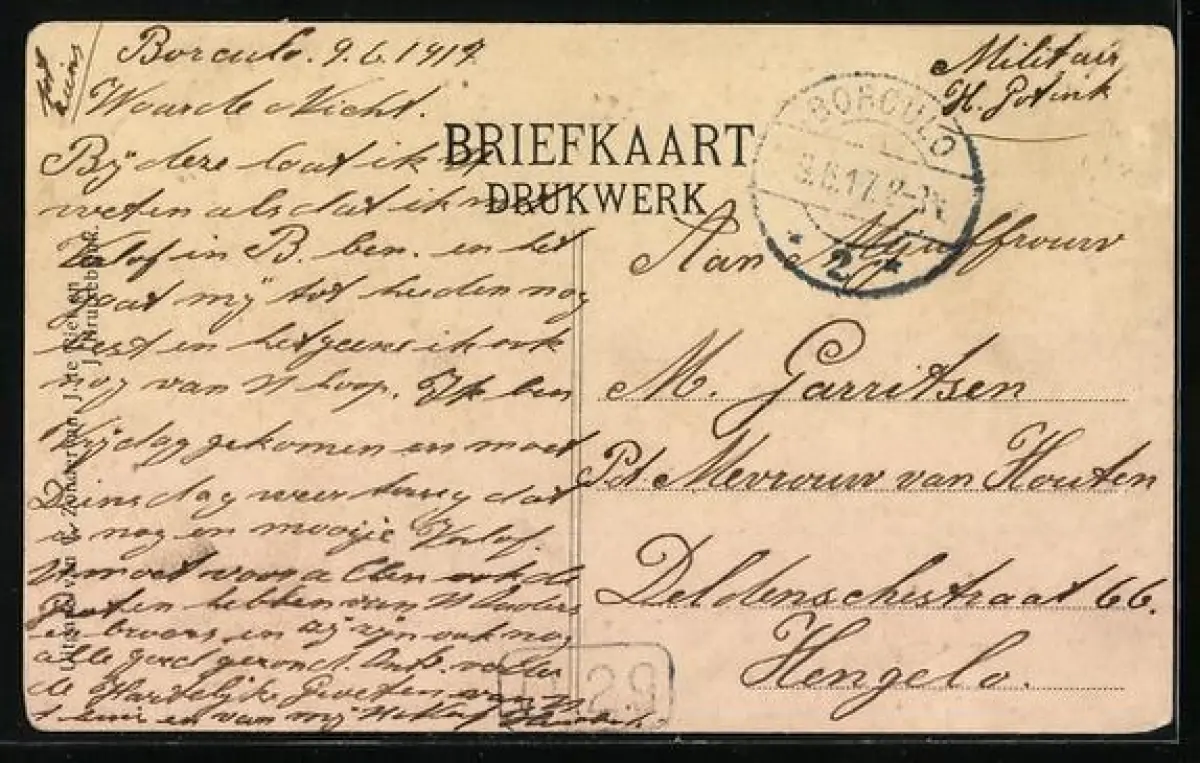 Borculo. 9.6.1917
Waarde Nicht.
Bij deze laat ik U
weten als dat ik met
Verlof in B. ben. en het
gaat mij tot heeden nog
best en hetgeene ik ook
nog van U hoop. Ik ben
Vrijdag gekomen en moet
Dinsdag weer terug dat
is nog en mooije Verlof.
U moet voor
hebben van U Ouders
en broers en zij zijn ook nog
alle goed gezond. verder
de Hartelijke Groeten van
en van mij
BRIEFKAART
DRUKWERK
Militair
H. Gotink
BORCULO
9.6.17. 2-
2
Aan Mejuffrouw
M. Garritsen
Pd. Mevrouw van Houten
Deldenschestraat 66.
Hengelo.
29